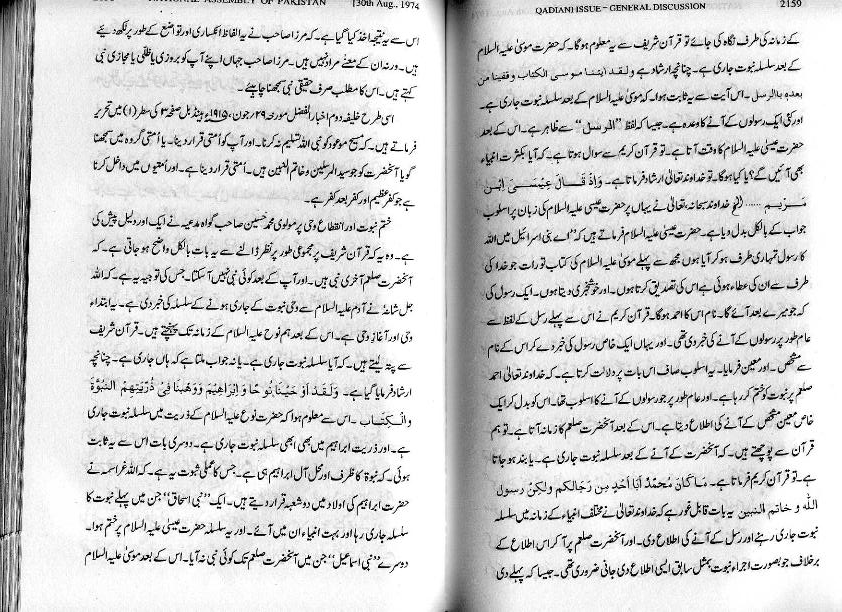 NATIONAL ASSEMBLY OF PAKISTAN [30th Aug., 1974
اس سے یہ نتیجہ اخذ کیا گیا ہے۔ کہ مرزا صاحب نے یہ الفاظ انکساری اور تواضع کے طور پر لکھ دیئے
ہیں۔ ورنہ ان کے معنے مراد نہیں ہیں۔ مرزا صاحب جہاں اپنے آپ کو بروزی یا ظلی یا مجازی نبی
کہتے ہیں۔ اس کا مطلب صرف حقیقی نبی سمجھنا چاہیئے۔
اسی طرح خلیفہ دوم اخبار الفضل مورخہ ۲۹؍جون، ۱۹۱۵ء ہینڈبل صفحہ ۳ کی سطر (۱) میں تحریر
فرماتے ہیں۔ کہ مسیح موعود کو نبی اللہ تسلیم نہ کرنا۔ اور آپ کو اُمتی قرار دینا۔ یا اُمتی گروہ میں سمجھنا
گویا آنحضرت کو جو سید المرسلین و خاتم النبین ہیں۔ اُمتی قرار دینا ہے۔ اور امتیوں میں داخل کرنا
ہے جو کفر عظیم اور کفر بعد کفر ہے۔
ختم نبوت اور انقطاع وحی پر مولوی محمد حسین صاحب گواہ مدعیہ نے ایک اور دلیل پیش کی
ہے۔ وہ یہ کہ قرآن شریف پر مجموعی طور پر نظر ڈالنے سے یہ بات بالکل واضح ہو جاتی ہے۔ کہ
آنحضرت صلعم آخری نبی ہیں۔ اور آپ کے بعد کوئی نبی نہیں آ سکتا۔ جس کی توجیہ یہ ہے۔ کہ اللہ
جل شانہٗ نے آدم علیہ السلام سے وحی نبوت کے جاری ہونے کے سلسلہ کی خبر دی ہے۔ یہ ابتداء
وحی اور آغاز وحی ہے۔ اس کے بعد ہم نوح علیہ السلام کے زمانہ تک پہنچتے ہیں۔ قرآن شریف
سے پتہ لیتے ہیں۔ کہ آیا سلسلہ نبوت جاری ہے۔ یا نہ جواب ملتا ہے کہ ہاں جاری ہے۔ چنانچہ
ارشاد فرمایا گیا ہے۔ وَلَقَدْ اَوْحَیْنَا نُوحًا وَّاِبْرَاهِیْمَ وَوَهَبْنَا فِیْ ذُرِّیَتِهِمْ النُبُوَّةَ
وَالْکِتَاب ۔ اس سے معلوم ہوا کہ حضرت نوح علیہ السلام کے ذریت میں سلسلہ نبوت جاری
ہے۔ اور ذریت ابراہیم میں بھی ابھی سلسلہ نبوت جاری ہے۔ دوسری بات اس سے یہ ثابت
ہوئی۔ کہ نبوۃ کا ظرف اور محل آل ابراہیم ہی ہے۔ جس کا عملی ثبوت یہ ہے۔ کہ اللہ عز اسمہ نے
حضرت ابراہیم کی اولاد میں دو شعبہ قرار دیتے ہیں۔ ایک ”بنی اسحاق“ جن میں پہلے نبوت کا
سلسلہ جاری رہا اور بہت انبیاء ان میں آئے۔ اور یہ سلسلہ حضرت عیسیٰ علیہ السلام پر ختم ہوا۔
دوسرے ”بنی اسماعیل“ جن میں آنحضرت صلعم تک کوئی نبی نہ آیا۔ اس کے بعد موسیٰ علیہ السلام
QADIANI ISSUE – GENERAL DISCUSSION 2159
کے زمانہ کی طرف نگاہ کی جائے تو قرآن شریف سے یہ معلوم ہوگا۔ کہ حضرت موسیٰ علیہ السلام
کے بعد سلسلہ نبوت جاری ہے۔ چنانچہ ارشاد ہے ولقد اٰتینا موسی الکتاب وقفینا من
بعده بالرسل ۔ اس آیت سے یہ ثابت ہوا۔ کہ موسیٰ علیہ السلام کے بعد سلسلہ نبوت جاری ہے۔
اور کئی ایک رسولوں کے آنے کا وعدہ ہے۔ جیسا کہ لفظ ”الرسل“ سے ظاہر ہے۔ اس کے بعد
حضرت عیسیٰ علیہ السلام کا وقت آتا ہے۔ تو قرآن کریم سے سوال ہوتا ہے۔ کہ آیا بکثرت انبیاء
بھی آئیں گے؟ یا کیا ہوگا؟ تو خداوند تعالیٰ ارشاد فرماتا ہے۔ وَاِذْ قَالَ عِیْسَی ابْنِ
مَرْیَم ...... الخ خداوند سبحانہ تعالیٰ نے یہاں پر حضرت عیسیٰ علیہ السلام کی زبان پر اسلوب
جواب کے بالکل بدل دیا ہے۔ حضرت عیسیٰ علیہ السلام فرماتے ہیں کہ ”اے بنی اسرائیل میں اللہ
کا رسول تمہاری طرف ہو کر آیا ہوں مجھ سے پہلے موسیٰ علیہ السلام کی کتاب تورات جو خدا کی
طرف سے ان کی عطاء ہوئی ہے اس کی تصدیق کرتا ہوں۔ اور خوشخبری دیتا ہوں۔ ایک رسول کی
کہ جو میرے بعد آئے گا۔ نام اس کا احمد ہوگا۔ قرآن کریم نے اس سے پہلے رسل کے لفظ سے
عام طور پر رسولوں کے آنے کی خبر دی تھی۔ اور یہاں ایک خاص رسول کی خبر دے کر اس کے نام
سے مشخص۔ اور معین فرمایا۔ یہ اسلوب صاف اس بات پر دلالت کرتا ہے۔ کہ خداوند تعالیٰ احمد
صلعم پر نبوت کو ختم کر رہا ہے۔ اور عام طور پر جو رسولوں کے آنے کا اسلوب تھا۔ اس کو بدل کر ایک
خاص معین مشخص کے آنے کی اطلاع دیتا ہے۔ اس کے بعد آنحضرت صلعم کا زمانہ آتا ہے۔ تو ہم
قرآن سے پوچھتے ہیں۔ کہ آنحضرت کے آنے کے بعد سلسلہ نبوت جاری ہے۔ یا بند ہو جاتا
ہے۔ تو قرآن کریم فرماتا ہے۔ مَا کَانَ مُحَمَّدٌ اَبَا اَحَدٍ مِن رِجَالِکم ولٰکِنْ رسول
اللّٰه و خاتم النبین یہ بات قابل غور ہے کہ خداوند تعالیٰ نے مختلف انبیاء کے زمانہ میں سلسلہ
نبوت جاری رہنے اور رسل کے آنے کی اطلاع دی۔ اور آنحضرت صلعم پر آ کر اس اطلاع کے
برخلاف جو بصورت اجراء نبوت بمثل سابق ایسی اطلاع دی جانی ضروری تھی۔ جیسا کہ پہلے دی